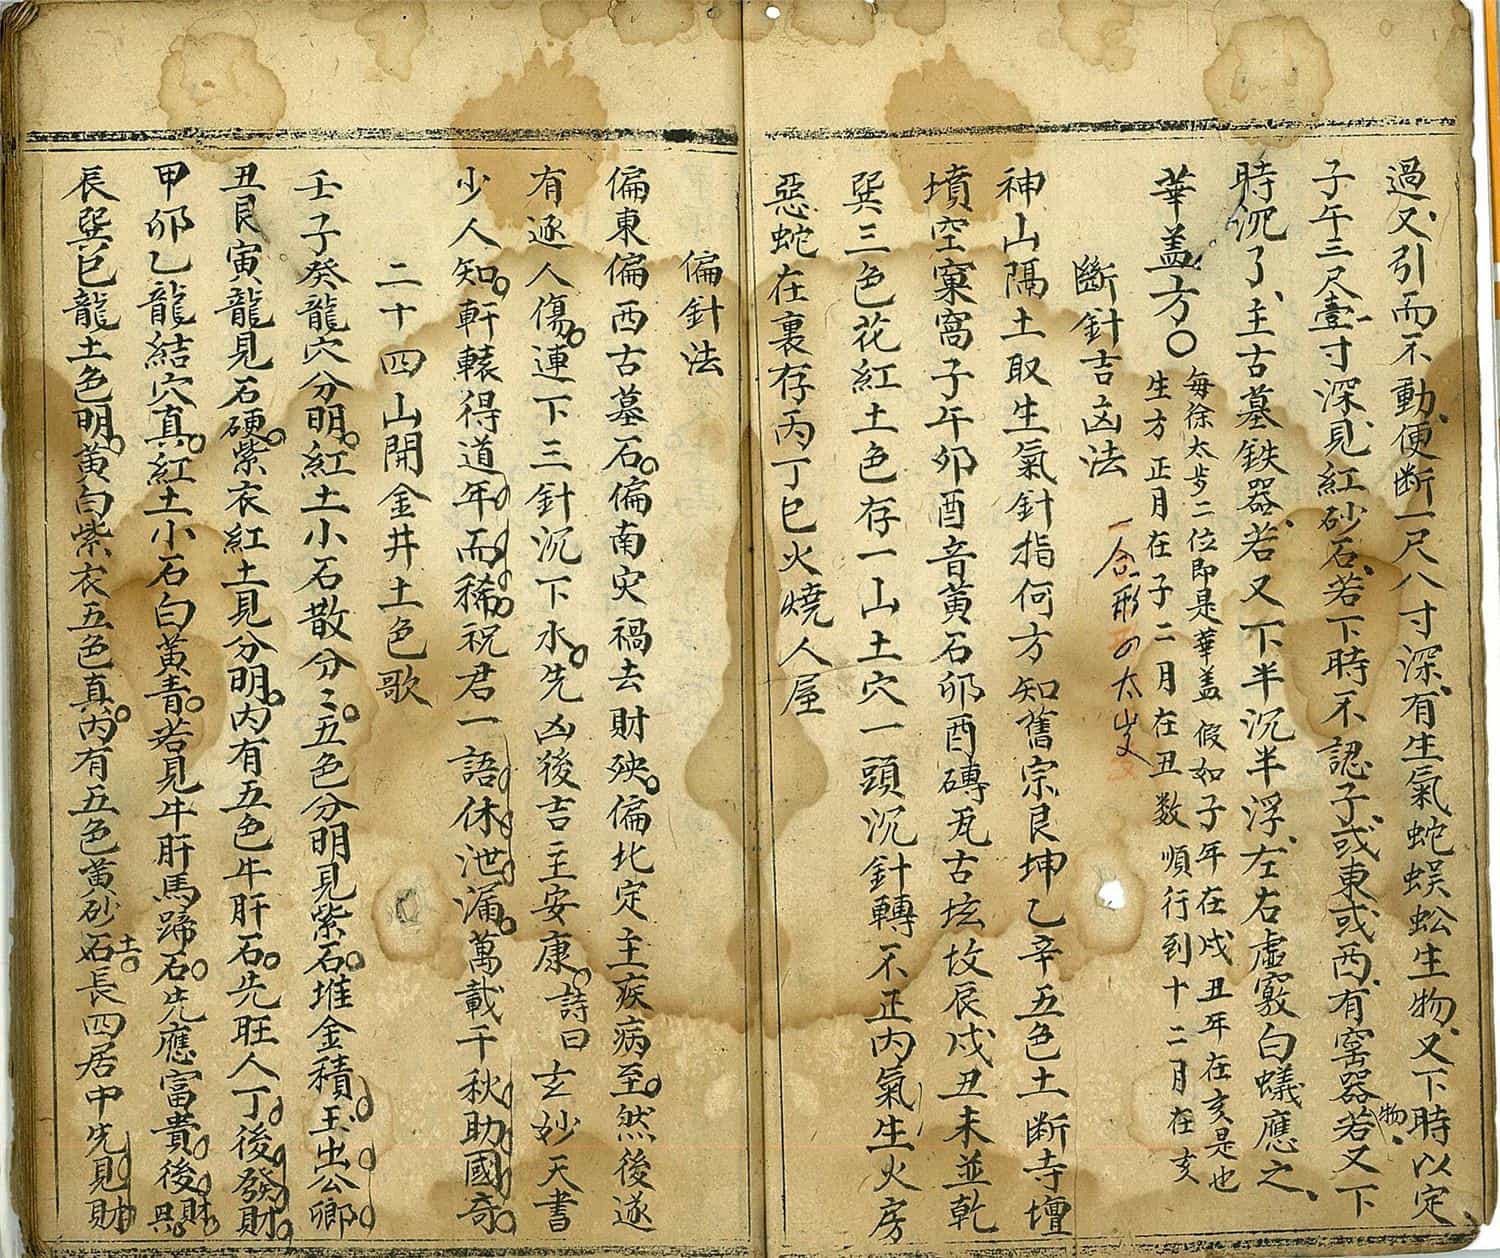 過又引而不動便断一尺八寸深有生氣蛇蜈蚣生物又下時以定
子午三尺壹寸深見紅砂石若下時不認子或東或西有窰器物若又下
時沉了主古墓鉄器若又下半沉半浮左右虛竅白蟻應之
華盖方〇
每徐太歩二位即是華盖假如子年在戌丑年在亥是也
生方正月在子二月在丑数順行到十二月在亥
斷針吉凶法
神山隔土取生氣針指何方知舊宗艮坤乙辛五色土断寺壇
墳空窠窩子午卯酉音黃石卯酉磚瓦古坟辰戌丑未並乾
巽三色花紅土色存一山土穴一頭沉針轉不正内氣生火房
惡蛇在裏存丙丁巳火燒人屋
偏針法
偏東偏西古墓石偏南灾禍去財殃偏北定主疾病至然後遂
有逐人傷連下三針沉下水先凶後吉主安康詩曰玄妙天書
少人知軒轅得道年而稀祝君一語休泄漏萬載千秋助國奇
二十四山開金井土色歌
壬子癸龍穴分明紅土小石散分〻五色分明見紫石堆金積玉出公卿
丑艮寅龍見石硬紫衣紅土見分明内有五色牛肝石先旺人丁後發財
甲卯乙龍結穴真紅土小石白黃青若見牛肝馬蹄石先應富貴後財
辰巽巳龍土色明黃白紫衣五色真内有五色黃砂石土長四居中先見財